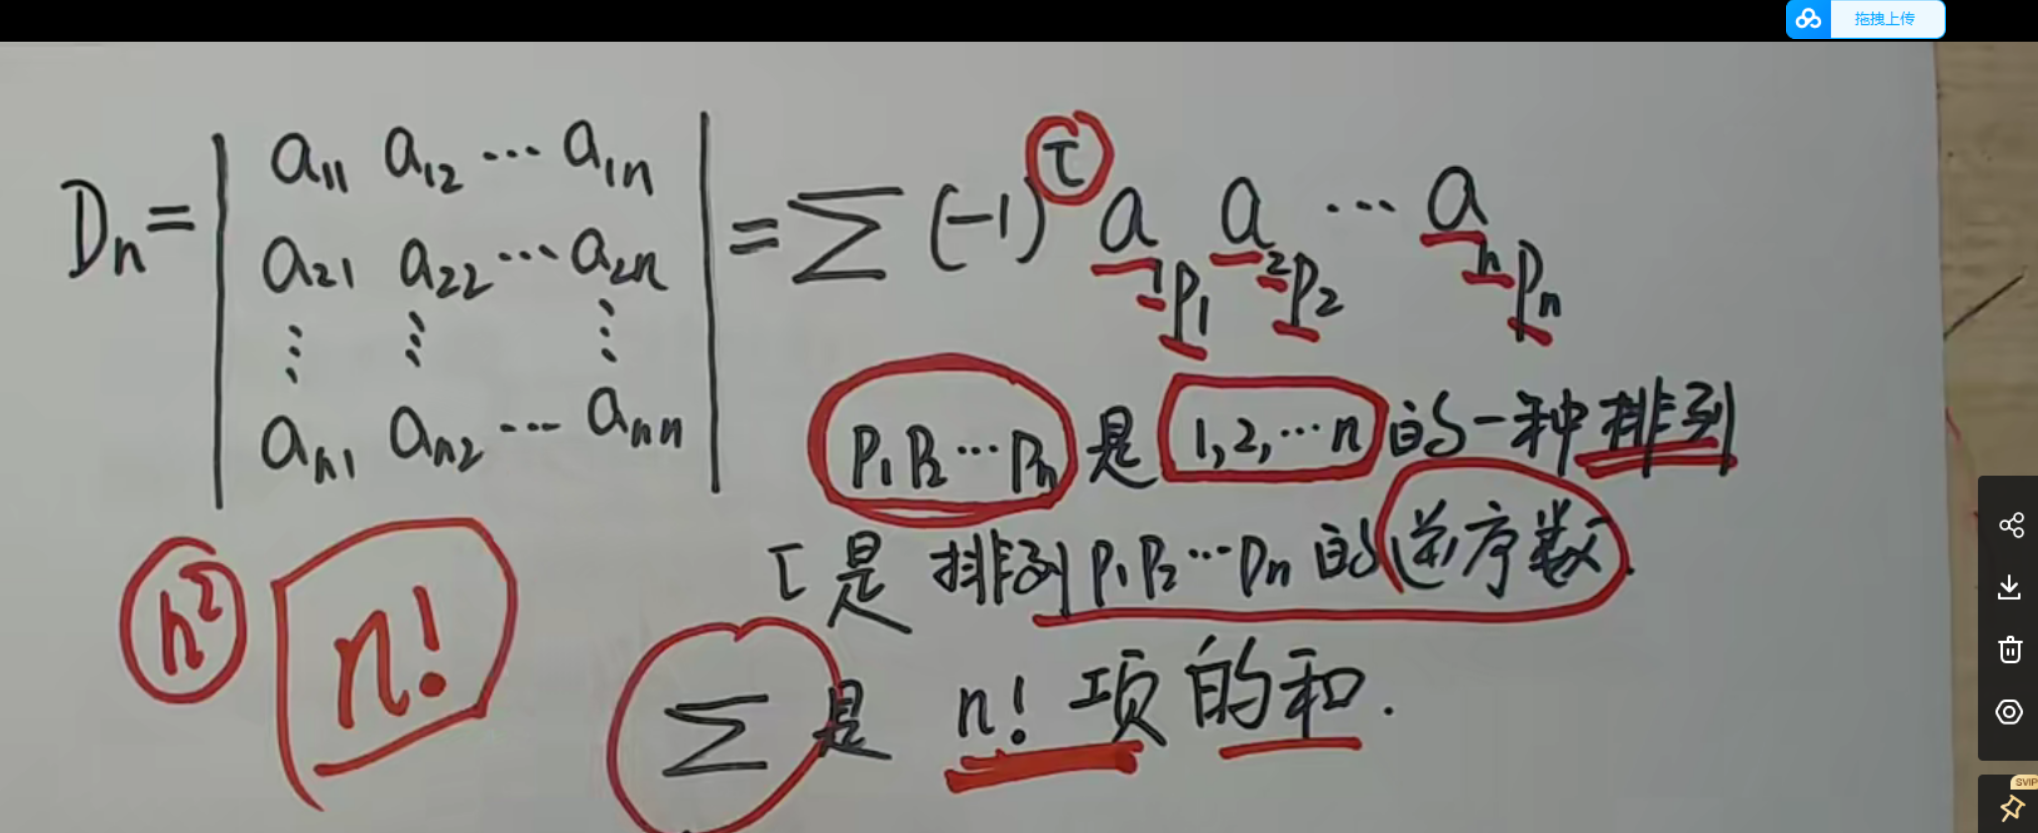 拖拽上传
Dn = | a11 a12 ⋯ a1n | = ∑ (-1)^τ a1p1 a2p2 ⋯ anpn
| a21 a22 ⋯ a2n |
| ⋮ ⋮ ⋮ |
| an1 an2 ⋯ ann |
p1 p2 ⋯ pn 是 1,2,⋯n 的一种排列
τ是 排列 p1 p2 ⋯ pn 的逆序数.
n² n!
∑ 是 n! 项的和.
SVIP